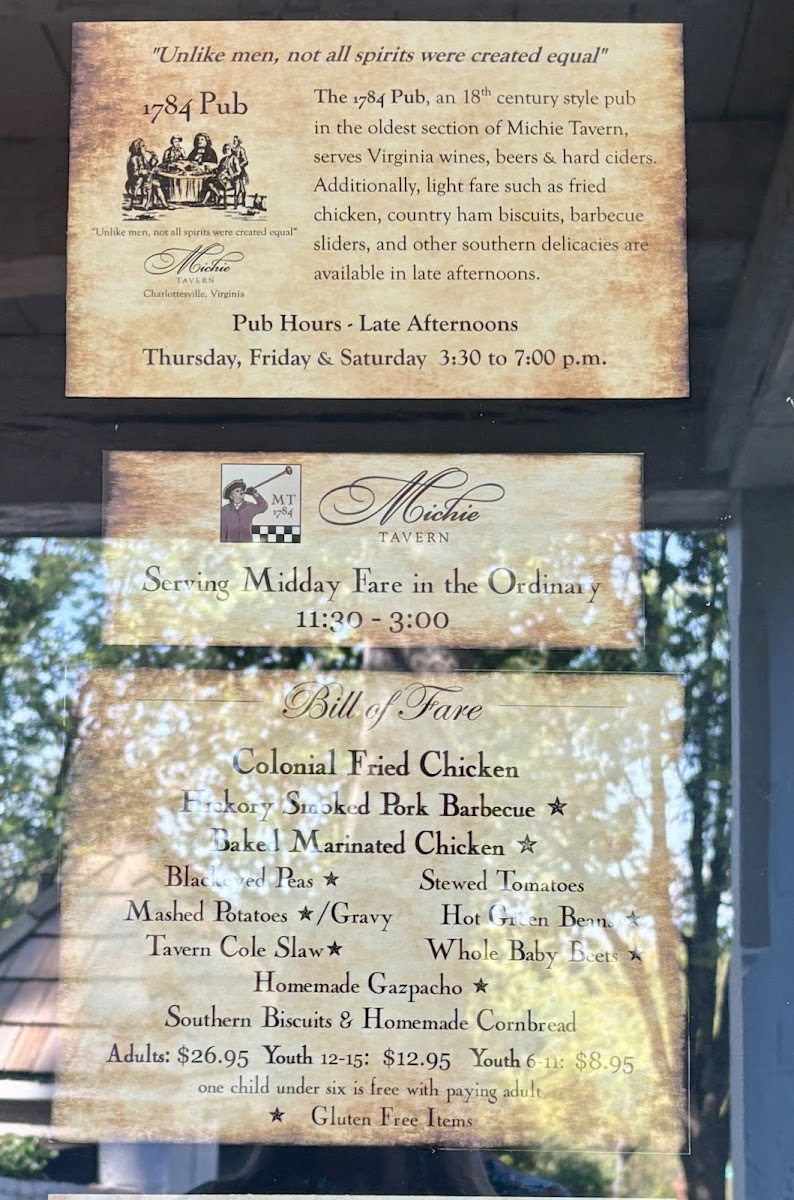 "Unlike men, not all spirits were created equal"
1784 Pub
"Unlike men, not all spirits were created equal"
Michie
TAVERN
Charlottesville, Virginia
The 1784 Pub, an 18th century style pub
in the oldest section of Michie Tavern,
serves Virginia wines, beers & hard ciders.
Additionally, light fare such as fried
chicken, country ham biscuits, barbecue
sliders, and other southern delicacies are
available in late afternoons.
Pub Hours - Late Afternoons
Thursday, Friday & Saturday 3:30 to 7:00 p.m.
MT
1784
Michie
TAVERN
Serving Midday Fare in the Ordinary
11:30 - 3:00
Bill of Fare
Colonial Fried Chicken
Hickory Smoked Pork Barbecue ★
Baked Marinated Chicken ★
Blackeyed Peas ★ Stewed Tomatoes
Mashed Potatoes ★/Gravy Hot Green Beans ★
Tavern Cole Slaw★ Whole Baby Beets ★
Homemade Gazpacho ★
Southern Biscuits & Homemade Cornbread
Adults: $26.95 Youth 12-15: $12.95 Youth 6-11: $8.95
one child under six is free with paying adult
★ Gluten Free Items